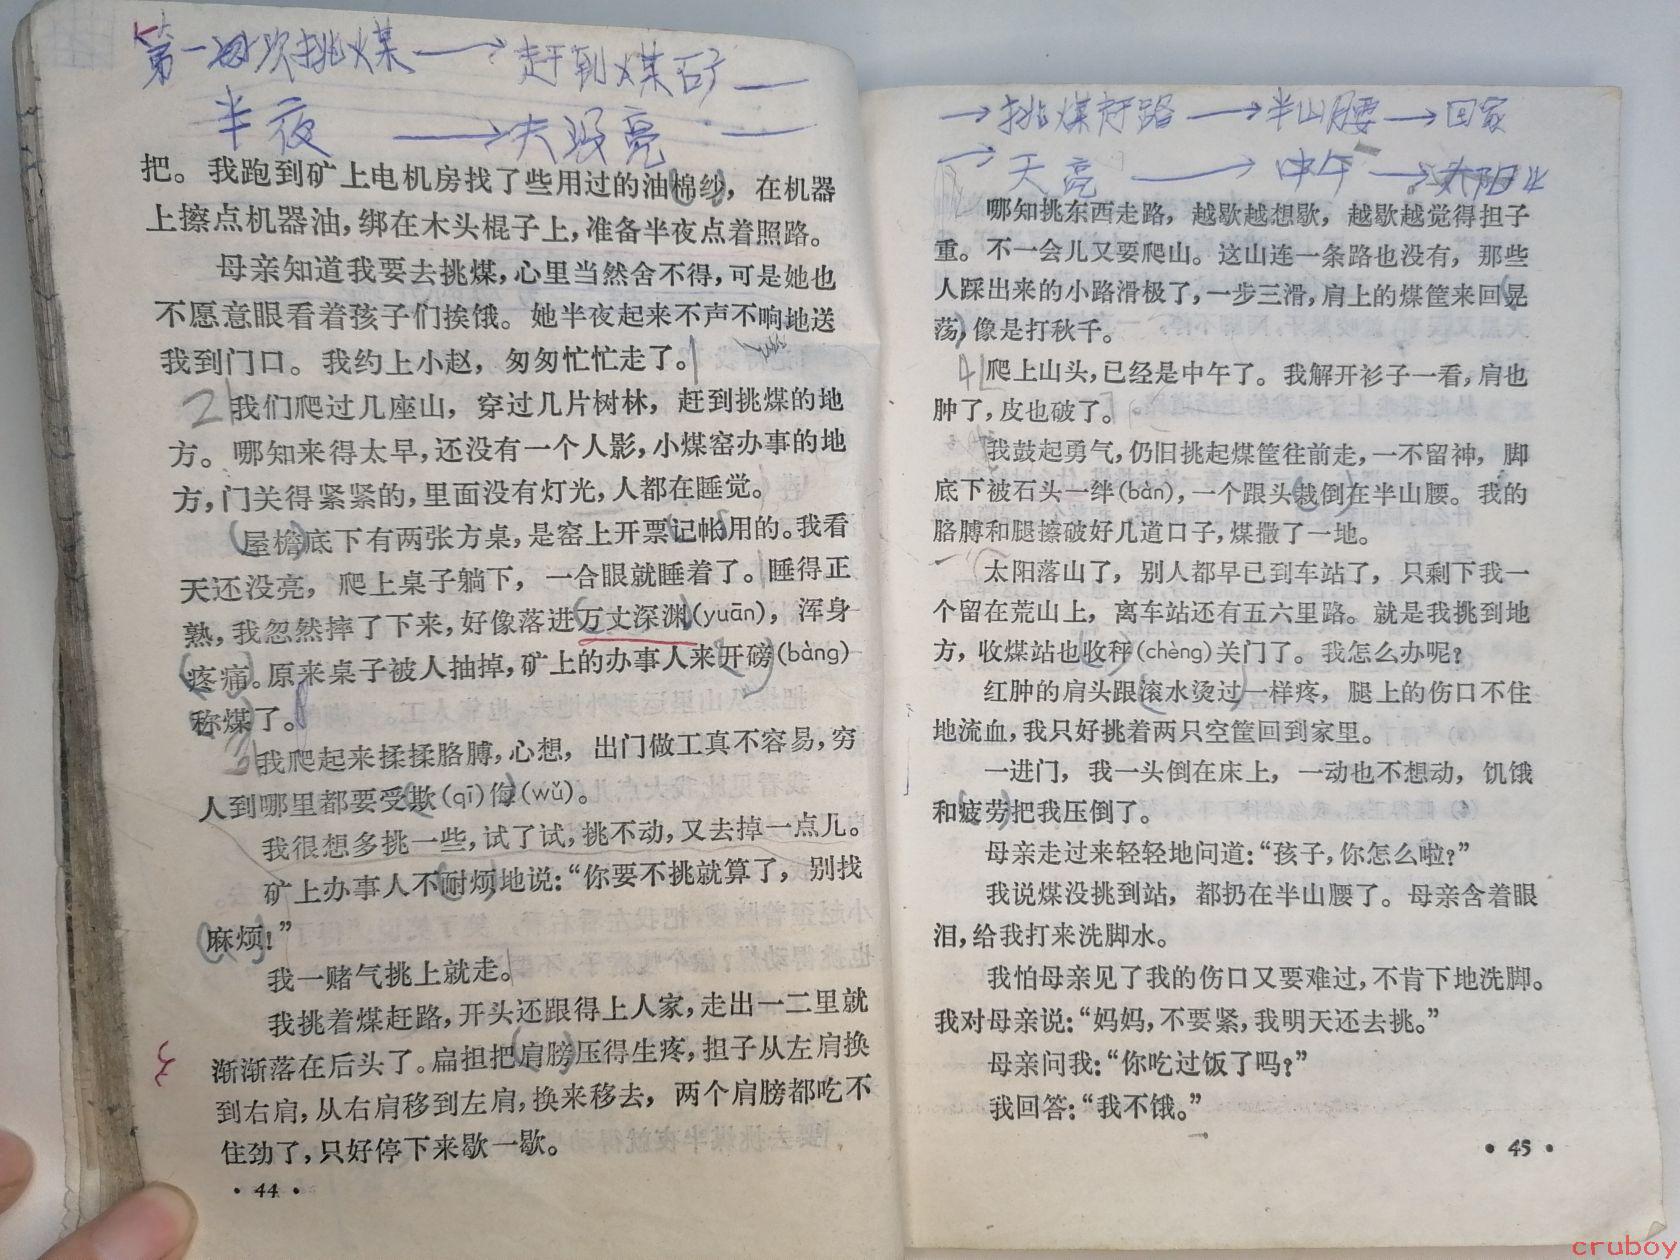 第一次挑煤 → 赶到煤矿 —
半夜 → 天没亮 —
把。我跑到矿上电机房找了些用过的油棉纱，在机器
上擦点机器油，绑在木头棍子上，准备半夜点着照路。
母亲知道我要去挑煤，心里当然舍不得，可是她也
不愿意眼看着孩子们挨饿。她半夜起来不声不响地送
我到门口。我约上小赵，匆匆忙忙走了。
2 我们爬过几座山，穿过几片树林，赶到挑煤的地
方。哪知来得太早，还没有一个人影，小煤窑办事的地
方，门关得紧紧的，里面没有灯光，人都在睡觉。
屋檐底下有两张方桌，是窑上开票记帐用的。我看
天还没亮，爬上桌子躺下，一合眼就睡着了。睡得正
熟，我忽然摔了下来，好像落进万丈深渊(yuān)，浑身
疼痛。原来桌子被人抽掉，矿上的办事人来开磅(bàng)
称煤了。
3 我爬起来揉揉胳膊，心想，出门做工真不容易，穷
人到哪里都要受欺(qī)侮(wǔ)。
我很想多挑一些，试了试，挑不动，又去掉一点儿。
矿上办事人不耐烦地说：“你要不挑就算了，别找
麻烦！”
我一赌气挑上就走。
我挑着煤赶路，开头还跟得上人家，走出一二里就
渐渐落在后头了。扁担把肩膀压得生疼，担子从左肩换
到右肩，从右肩移到左肩，换来移去，两个肩膀都吃不
住劲了，只好停下来歇一歇。
• 44 •
→ 挑煤赶路 → 半山腰 → 回家
→ 天亮 → 中午 → 太阳
哪知挑东西走路，越歇越想歇，越歇越觉得担子
重。不一会儿又要爬山。这山连一条路也没有，那些
人踩出来的小路滑极了，一步三滑，肩上的煤筐来回晃
荡，像是打秋千。
4 爬上山头，已经是中午了。我解开衫子一看，肩也
肿了，皮也破了。
我鼓起勇气，仍旧挑起煤筐往前走，一不留神，脚
底下被石头一绊(bàn)，一个跟头栽倒在半山腰。我的
胳膊和腿擦破好几道口子，煤撒了一地。
太阳落山了，别人都早已到车站了，只剩下我一
个留在荒山上，离车站还有五六里路。就是我挑到地
方，收煤站也收秤(chèng)关门了。我怎么办呢？
红肿的肩头跟滚水烫过一样疼，腿上的伤口不住
地流血，我只好挑着两只空筐回到家里。
一进门，我一头倒在床上，一动也不想动，饥饿
和疲劳把我压倒了。
母亲走过来轻轻地问道：“孩子，你怎么啦？”
我说煤没挑到站，都扔在半山腰了。母亲含着眼
泪，给我打来洗脚水。
我怕母亲见了我的伤口又要难过，不肯下地洗脚。
我对母亲说：“妈妈，不要紧，我明天还去挑。”
母亲问我：“你吃过饭了吗？”
我回答：“我不饿。”
• 45 •
cruboy